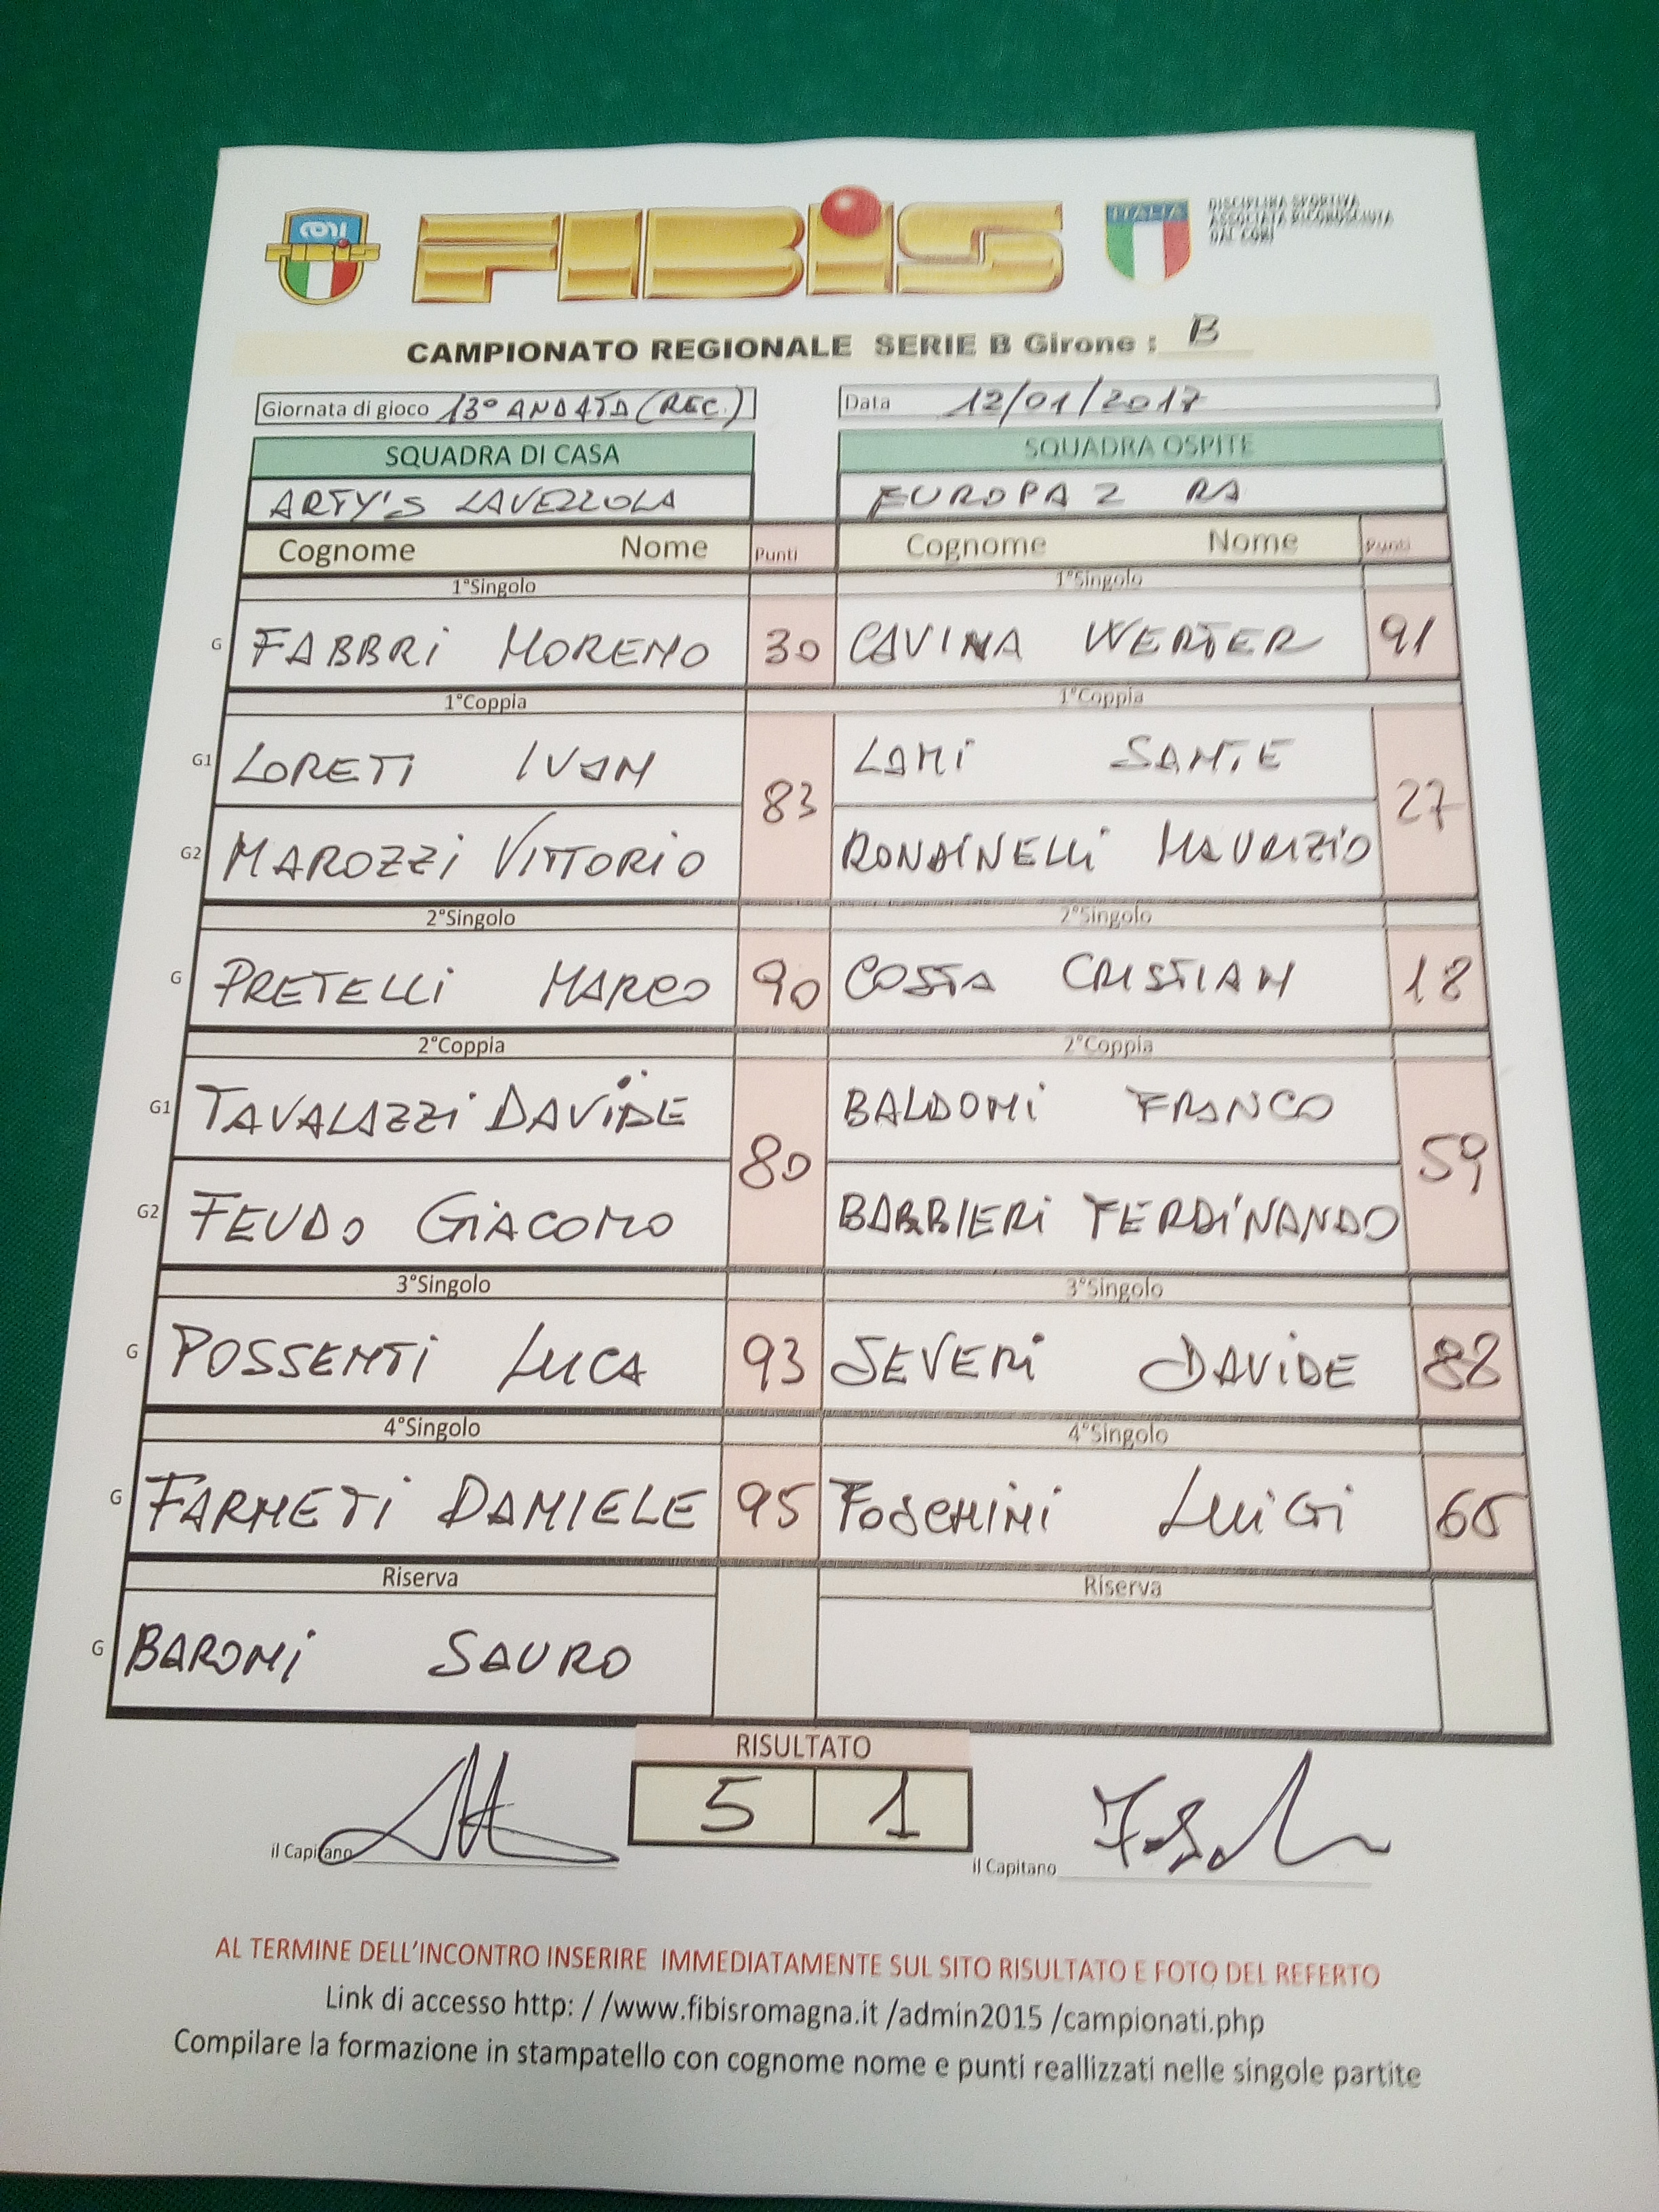 CONI
FIBIS
FIBIS
ITALIA
DISCIPLINA SPORTIVA
ASSOCIATA RICONOSCIUTA
DAL CONI
CAMPIONATO REGIONALE SERIE B Girone : B
Giornata di gioco 13° ANDATA (REC.)
Data 12/01/2017
SQUADRA DI CASA SQUADRA OSPITE
ARTY'S LAVEZZOLA EUROPA 2 RA
Cognome Nome Punti Cognome Nome Punti
1°Singolo 1°Singolo
G FABBRI MORENO 30 CAVINA WERTER 91
1°Coppia 1°Coppia
G1 LORETI IVAN LAMI SANTE
83 27
G2 MAROZZI VITTORIO RONDINELLI MAURIZIO
2°Singolo 2°Singolo
G PRETELLI MARCO 90 COSTA CRISTIAN 18
2°Coppia 2°Coppia
G1 TAVALAZZI DAVIDE BALDONI FRANCO
80 59
G2 FEUDO GIACOMO BARBIERI FERDINANDO
3°Singolo 3°Singolo
G POSSENTI LUCA 93 SEVERI DAVIDE 88
4°Singolo 4°Singolo
G FARNETI DANIELE 95 FOSCHINI LUIGI 65
Riserva Riserva
G BARONI SAURO
RISULTATO
5 1
il Capitano il Capitano
AL TERMINE DELL'INCONTRO INSERIRE IMMEDIATAMENTE SUL SITO RISULTATO E FOTO DEL REFERTO
Link di accesso http: / /www.fibisromagna.it /admin2015 /campionati.php
Compilare la formazione in stampatello con cognome nome e punti reallizzati nelle singole partite